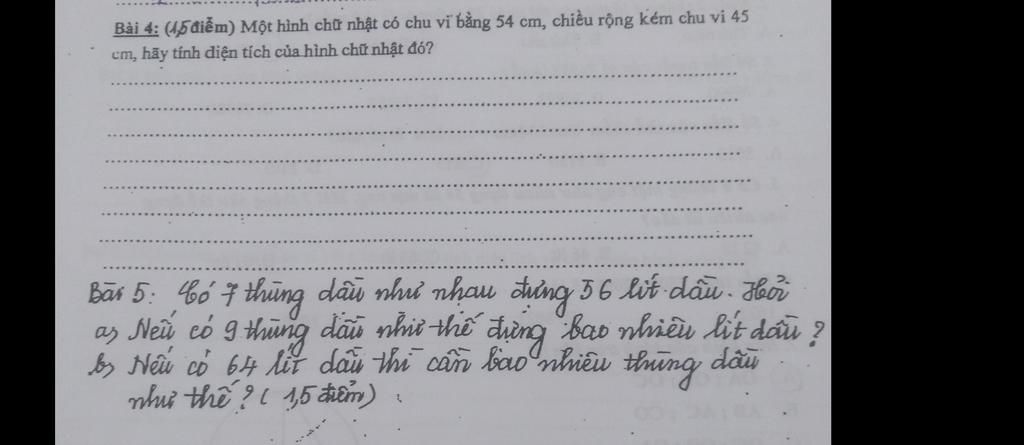 Bài 4: (1,5 điểm) Một hình chữ nhật có chu vi bằng 54 cm, chiều rộng kém chu vi 45
cm, hãy tính diện tích của hình chữ nhật đó?
Bài 5: Có 7 thùng dầu như nhau đựng 56 lít dầu. Hỏi
a) Nếu có 9 thùng dầu như thế đựng bao nhiêu lít dầu?
b) Nếu có 64 lít dầu thì cần bao nhiêu thùng dầu
như thế? (1,5 điểm)